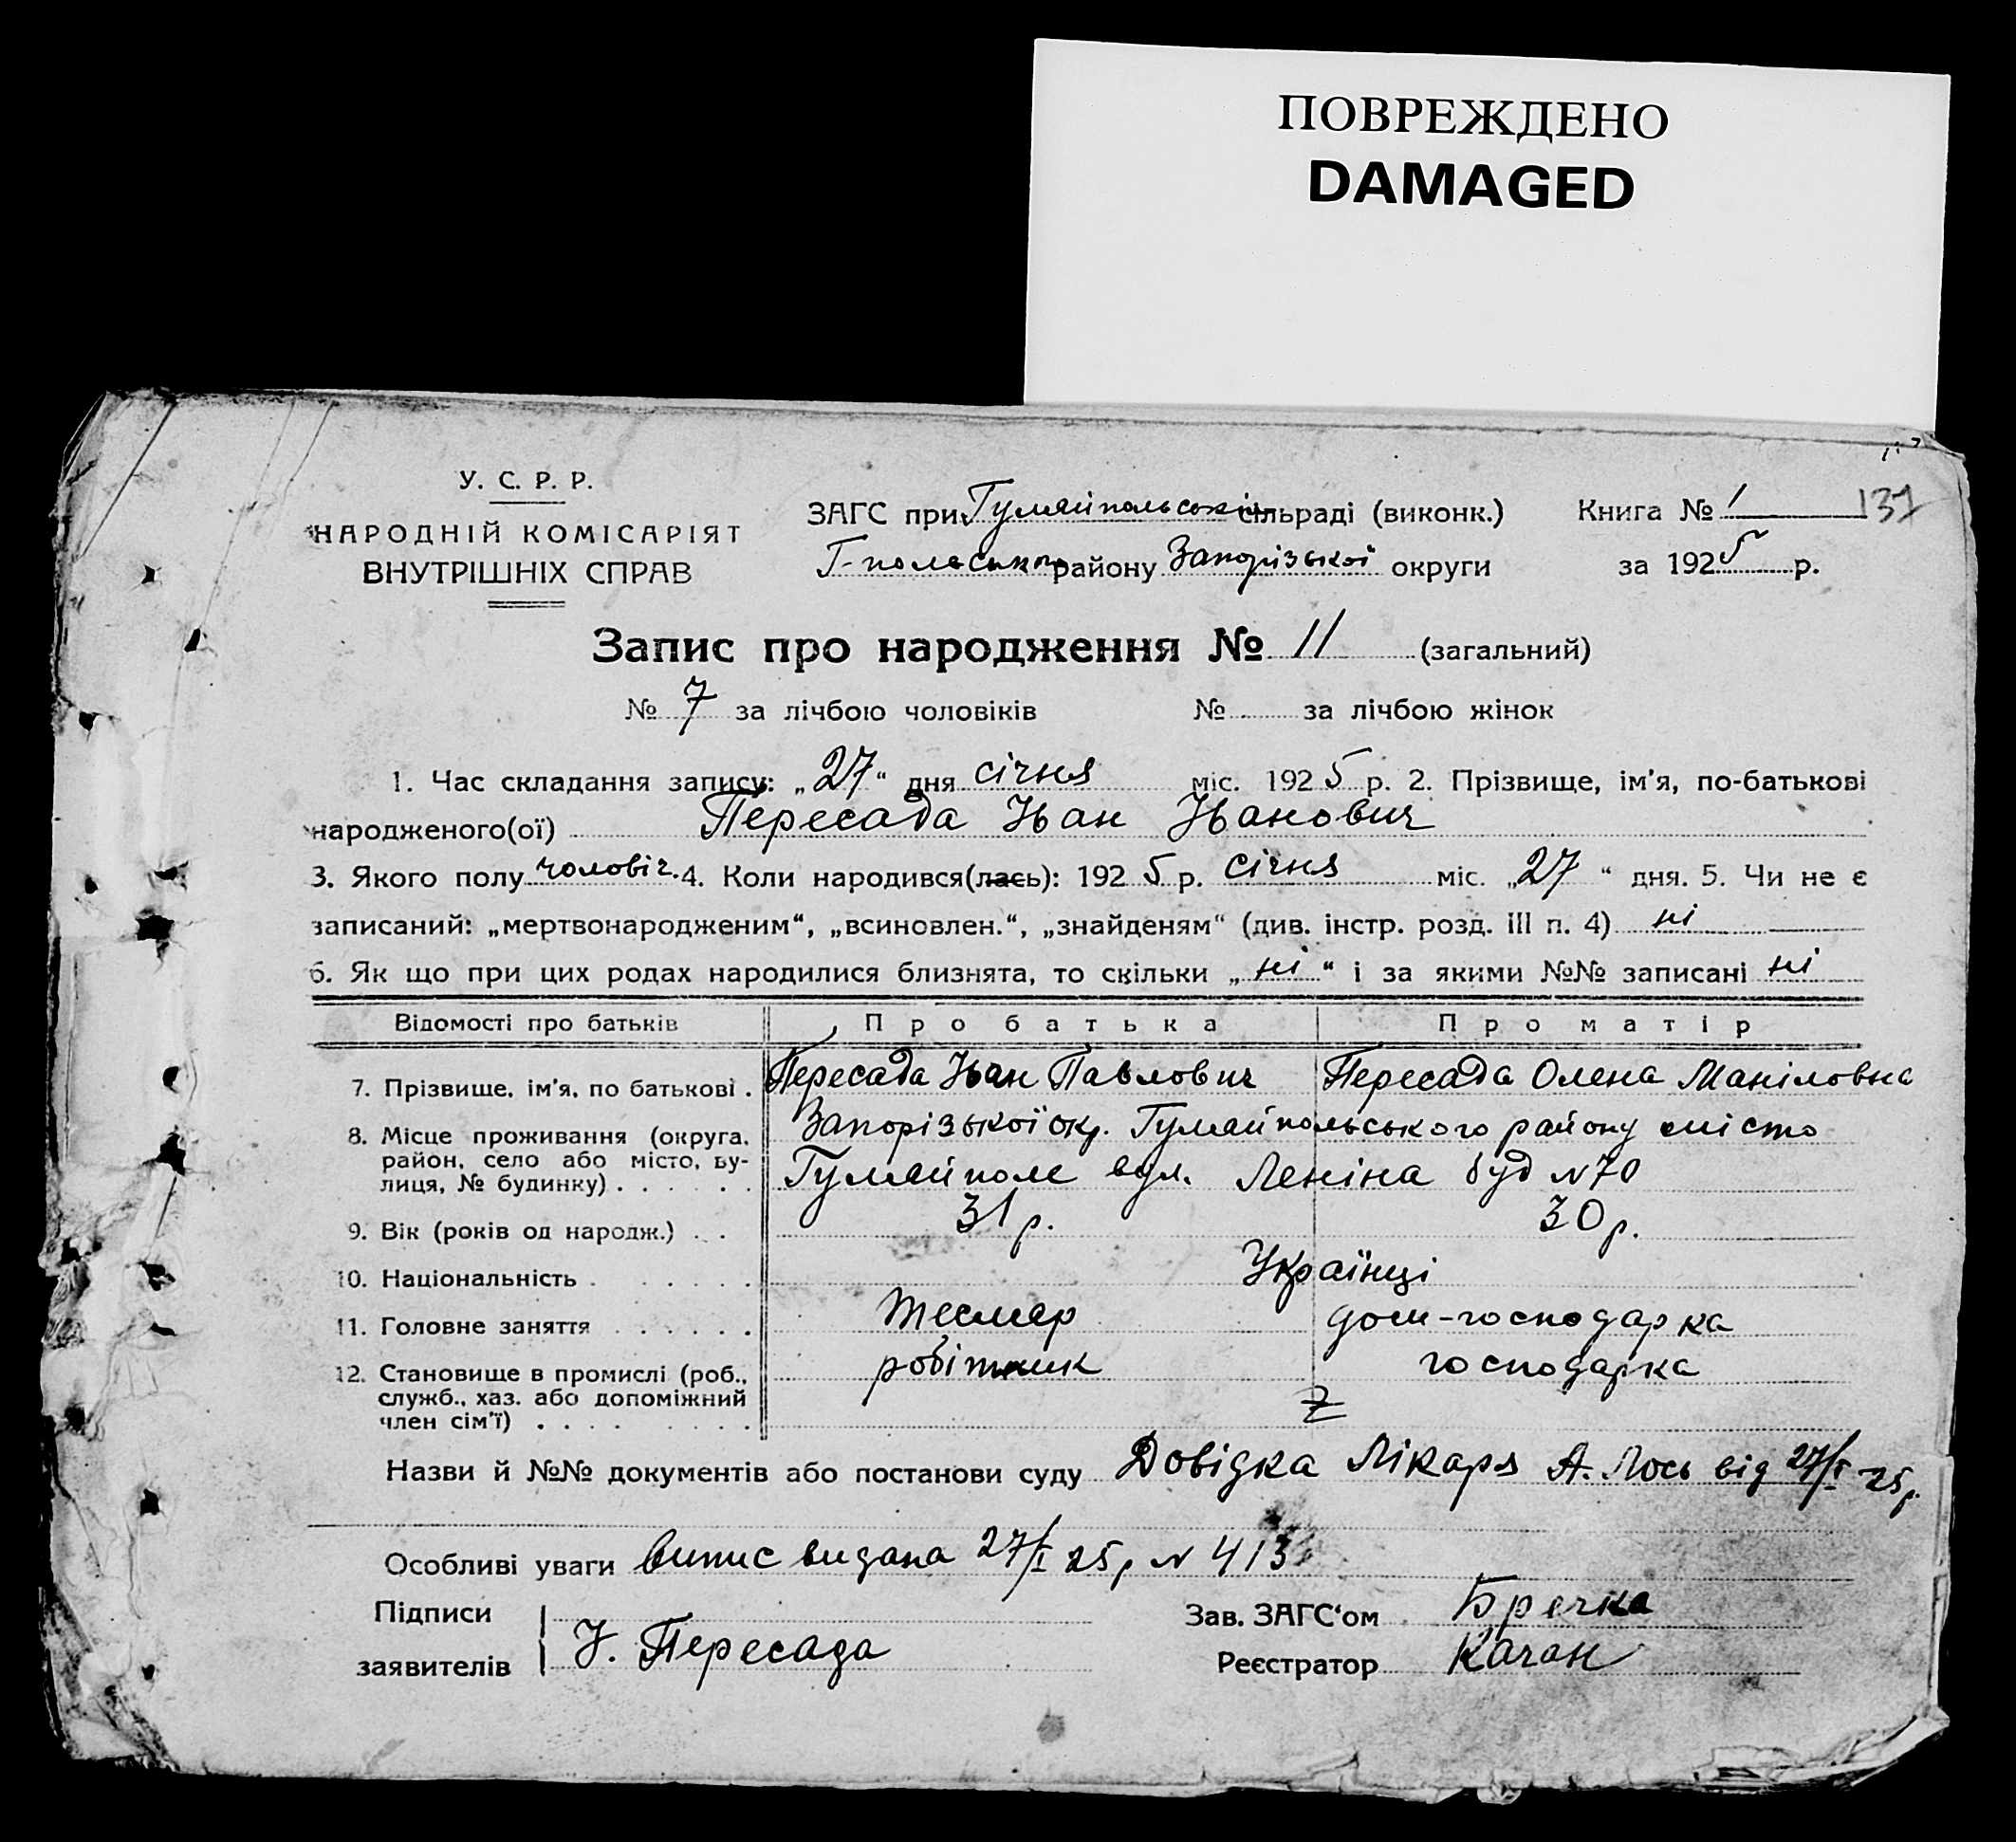 ПОВРЕЖДЕНО
DAMAGED
У. С. Р. Р.
НАРОДНІЙ КОМІСАРІЯТ
ВНУТРІШНІХ СПРАВ
ЗАГС при Гуляйпольській сільраді (виконк.)
Г-польського району Запорізької округи
Книга № 1 137
за 1925 р.
Запис про народження № 11 (загальний)
№ 7 за лічбою чоловіків № за лічбою жінок
1. Час складання запису: „27“ дня січня міс. 1925 р. 2. Прізвище, ім'я, по-батькові
народженого(ої) Пересада Іван Іванович
3. Якого полу чоловіч. 4. Коли народився(лась): 1925 р. січня міс. „27“ дня. 5. Чи не є
записаний: „мертвонародженим“, „всиновлен.“, „знайденям“ (див. інстр. розд. III п. 4) ні
6. Як що при цих родах народилися близнята, то скільки „ні“ і за якими №№ записані ні
Відомості про батьків Про батька Про матір
7. Прізвище, ім'я, по батькові . Пересада Іван Павлович Пересада Олена Маніловна
8. Місце проживання (округа, район, село або місто, вулиця, № будинку) . . . . . Запорізької окр. Гуляйпольського району місто
Гуляйполе вул. Леніна буд N70
9. Вік (років од народж.) . . 31 р. 30 р.
10. Національність . . . . . . Українці
11. Головне заняття . . . . . . Тесляр дом-господарка
12. Становище в промислі (роб., служб., хаз. або допоміжний член сім'ї) . . . . . . . . робітник господарка
Z
Назви й №№ документів або постанови суду Довідка Лікаря А. Лось від 27/I 25 р.
Особливі уваги випис видана 27/I 25 р N 413
Підписи
заявителів І. Пересада
Зав. ЗАГС'ом Бречка
Реєстратор Качан